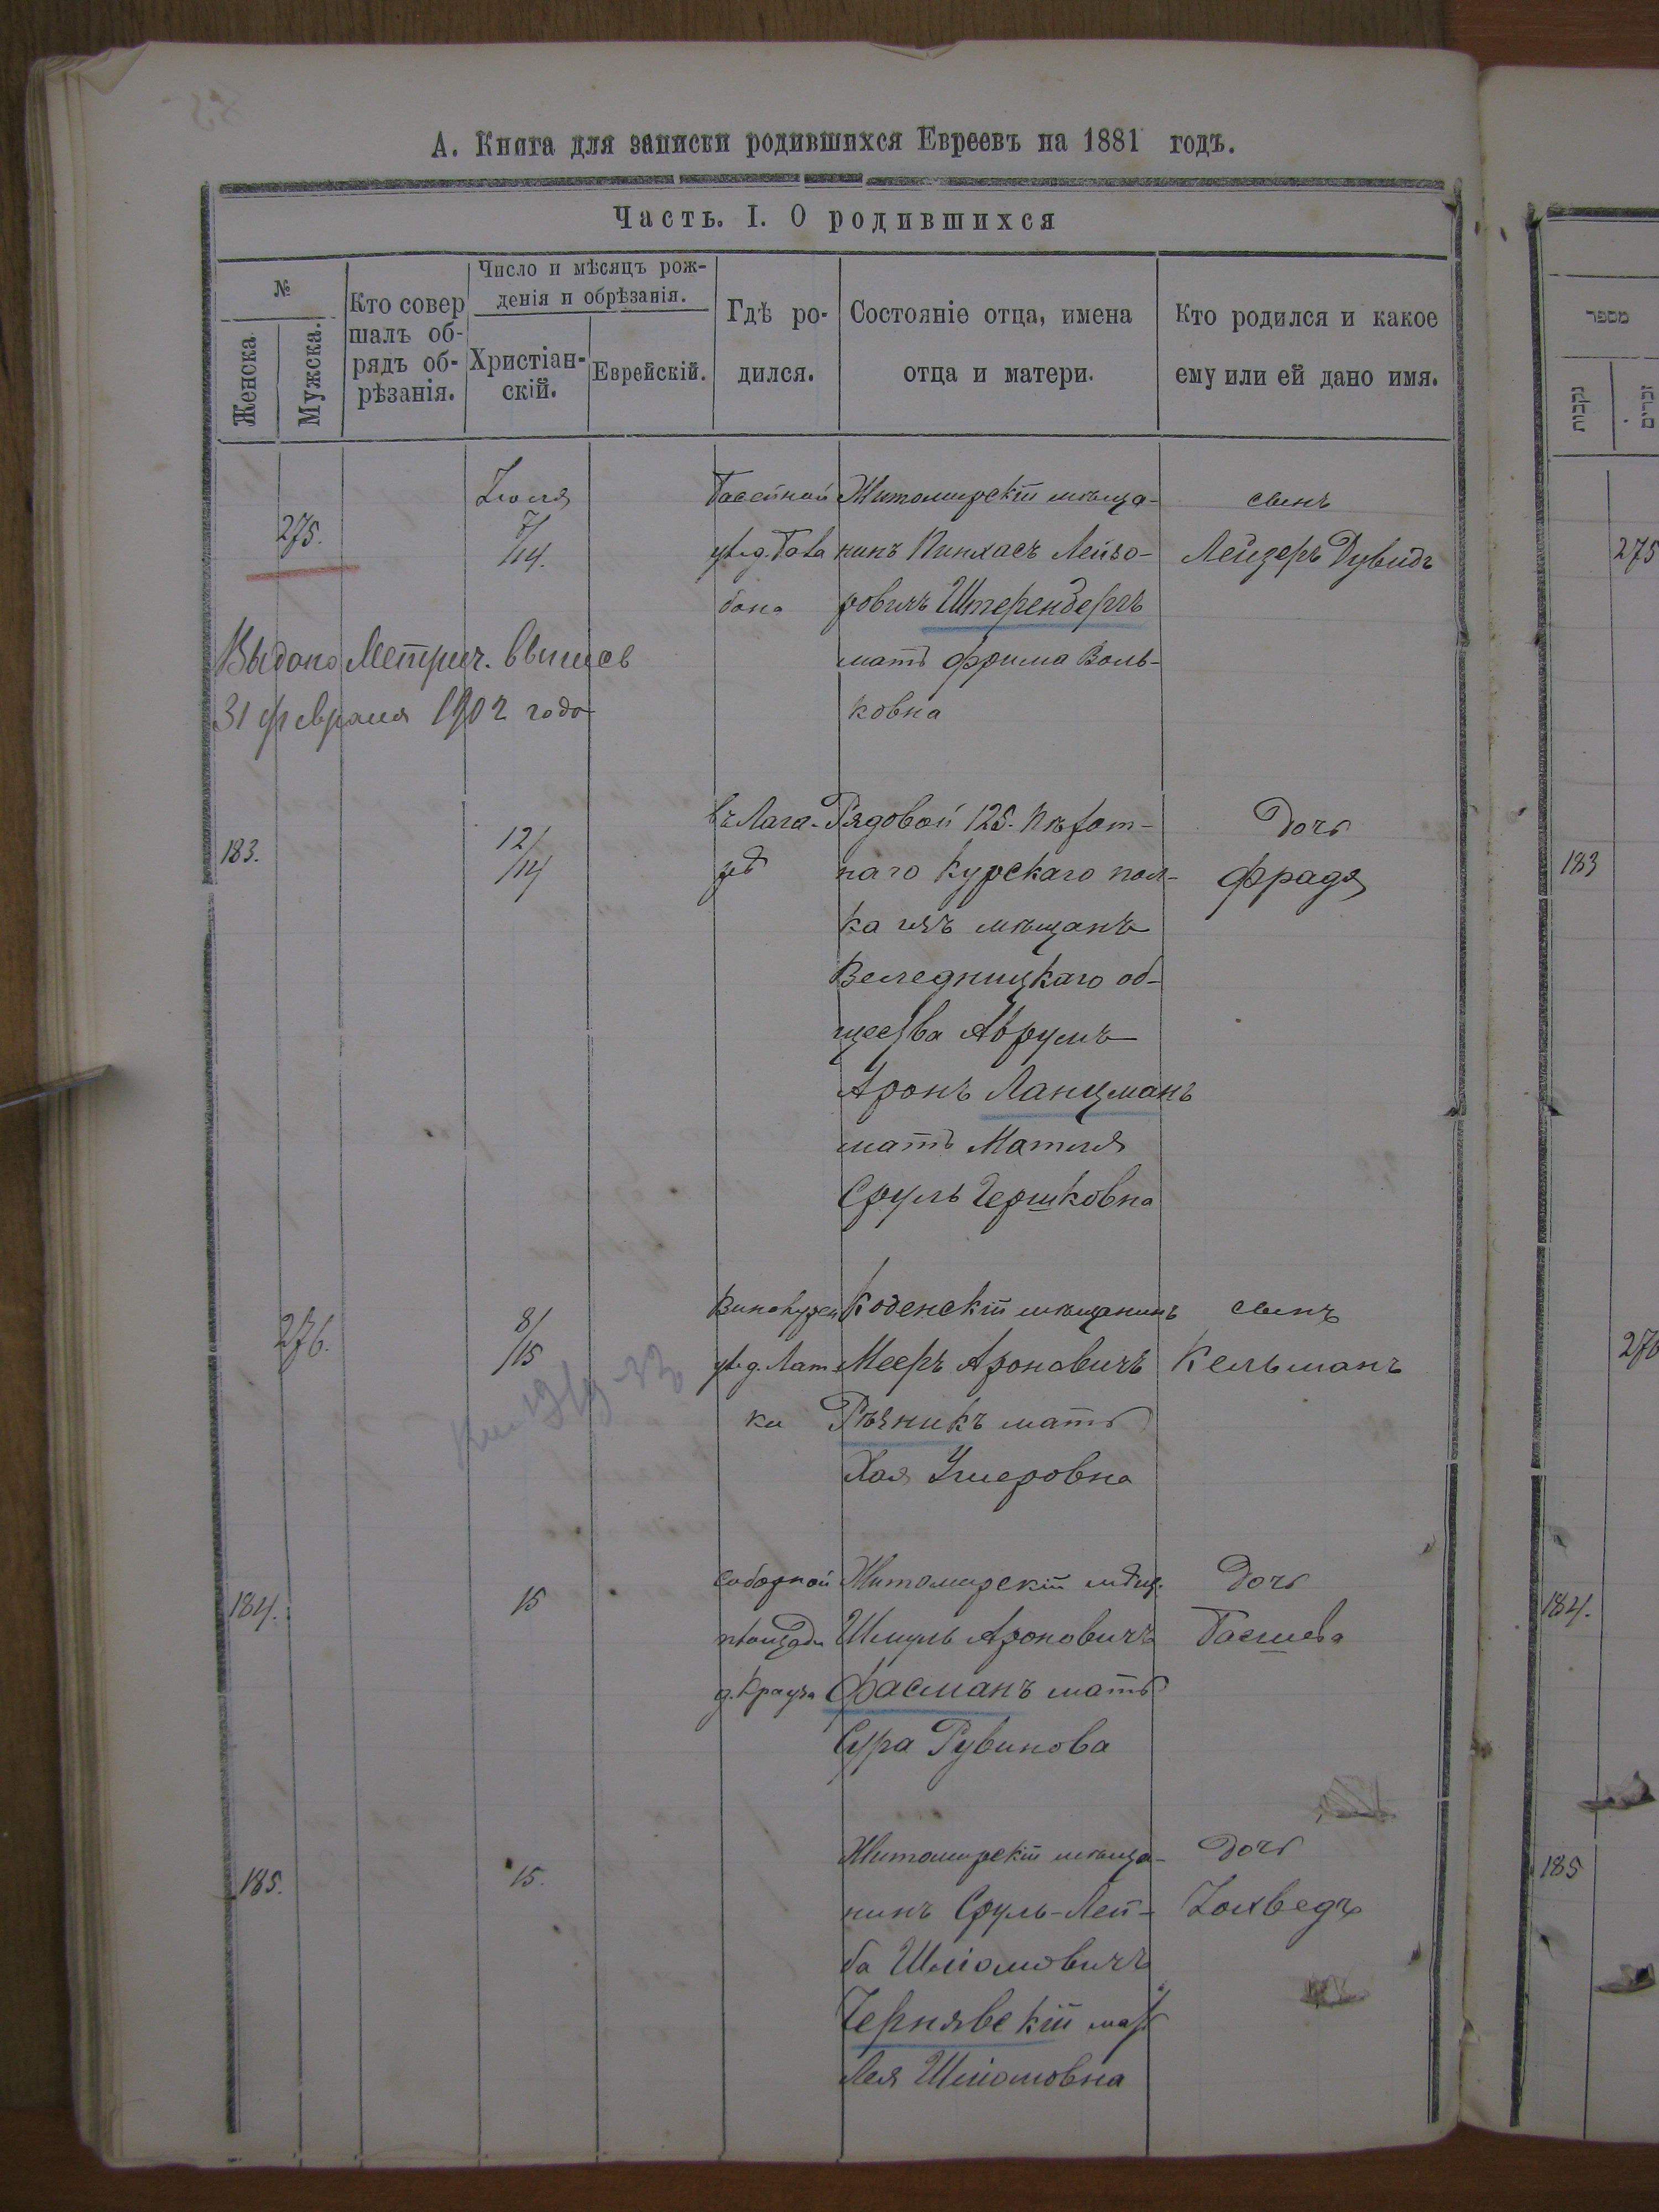 А. Книга для записки родившихся Евреевъ на 1881 годъ.
Часть. I. О родившихся
№
Женска
Мужска.
Кто совер
шалъ об-
рядъ об-
рѣзанія.
Число и мѣсяцъ рож-
денія и обрѣзанія.
Христіан-
скій.
Еврейскій.
Гдѣ ро-
дился.
Состояніе отца, имена
отца и матери.
Кто родился и какое
ему или ей дано имя.
275.
Іюля
7/14.
Житомирскій мѣща-
нинъ Пинхасъ Лейзо-
ровичъ Штеренбергъ
мать Фрима Воль-
ковна
сынъ
Лейзеръ Дувидъ
Выдано Метрич. выпись
31 февраля 1902 года
183.
12/14
въ Лаге-
рѣ
Рядовой 125. пѣхот-
наго Курскаго пол-
ка изъ мѣщанъ
Веледницкаго об-
щества Аврумъ
Аронъ Ланцманъ
мать Матля
Сруль Гершковна
Дочь
Фрадя
276.
8/15
Коденскій мѣщанинъ
Мееръ Ароновичъ
Рѣзникъ мать
Хая Ушеровна
сынъ
Кельманъ
184.
15
Соборной
площади
д. Крауза
Житомирскій мѣщ.
Шмуль Ароновичъ
Фасманъ мать
Сура Рувинова
Дочь
Басшева
185.
15.
Житомирскій мѣща-
нинъ Сруль-Лей-
ба Шліомовичъ
Чернявскій мать
Лея Шліомовна
Дочь
Іохведъ
מספר
נקבות
זכרים
275
183
276
184.
185